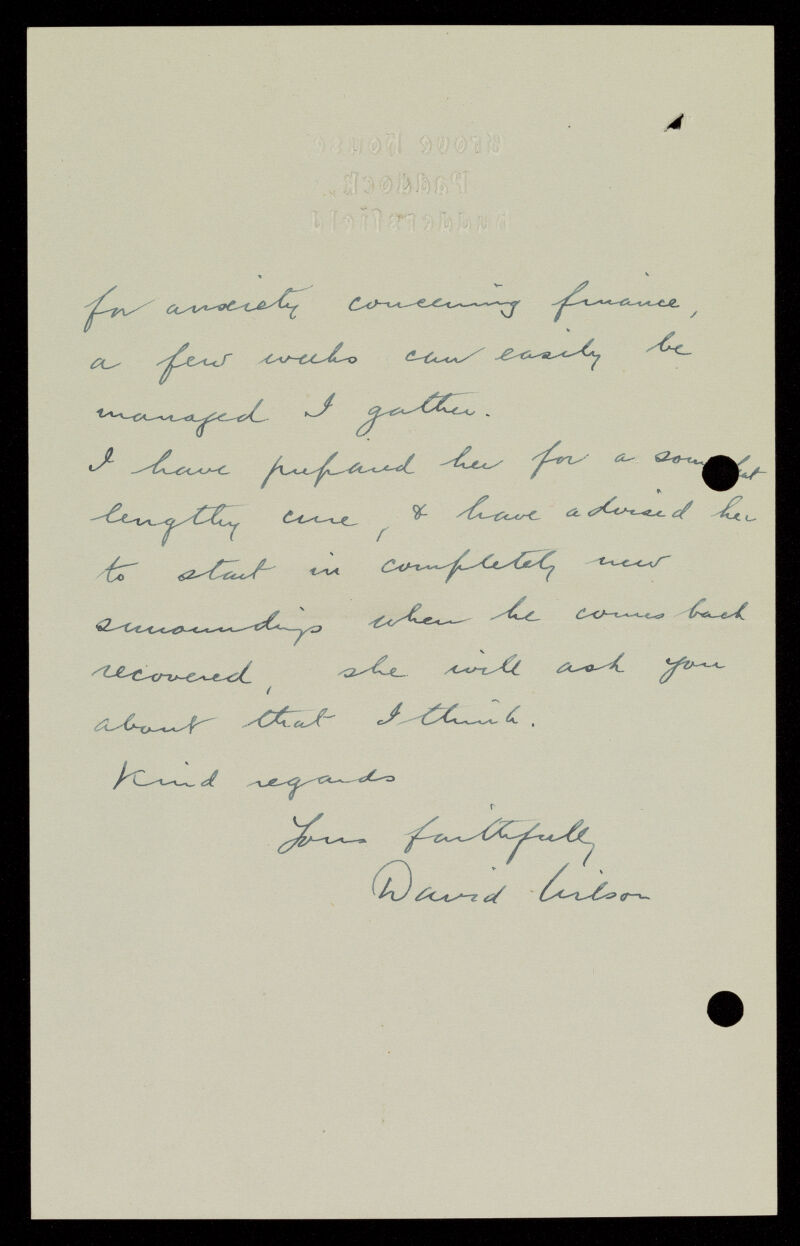 Grove House
Paddock,
Huddersfield
for anxiety concerning finance,
a few weeks can easily be
managed I gather.
I have prepared her for a som hat
lengthy cure, & have advised her
to start in completely new
surroundings when he comes back
recovered, she will ask you
about that I think.
Kind regards
Yours faithfully
David Wilson